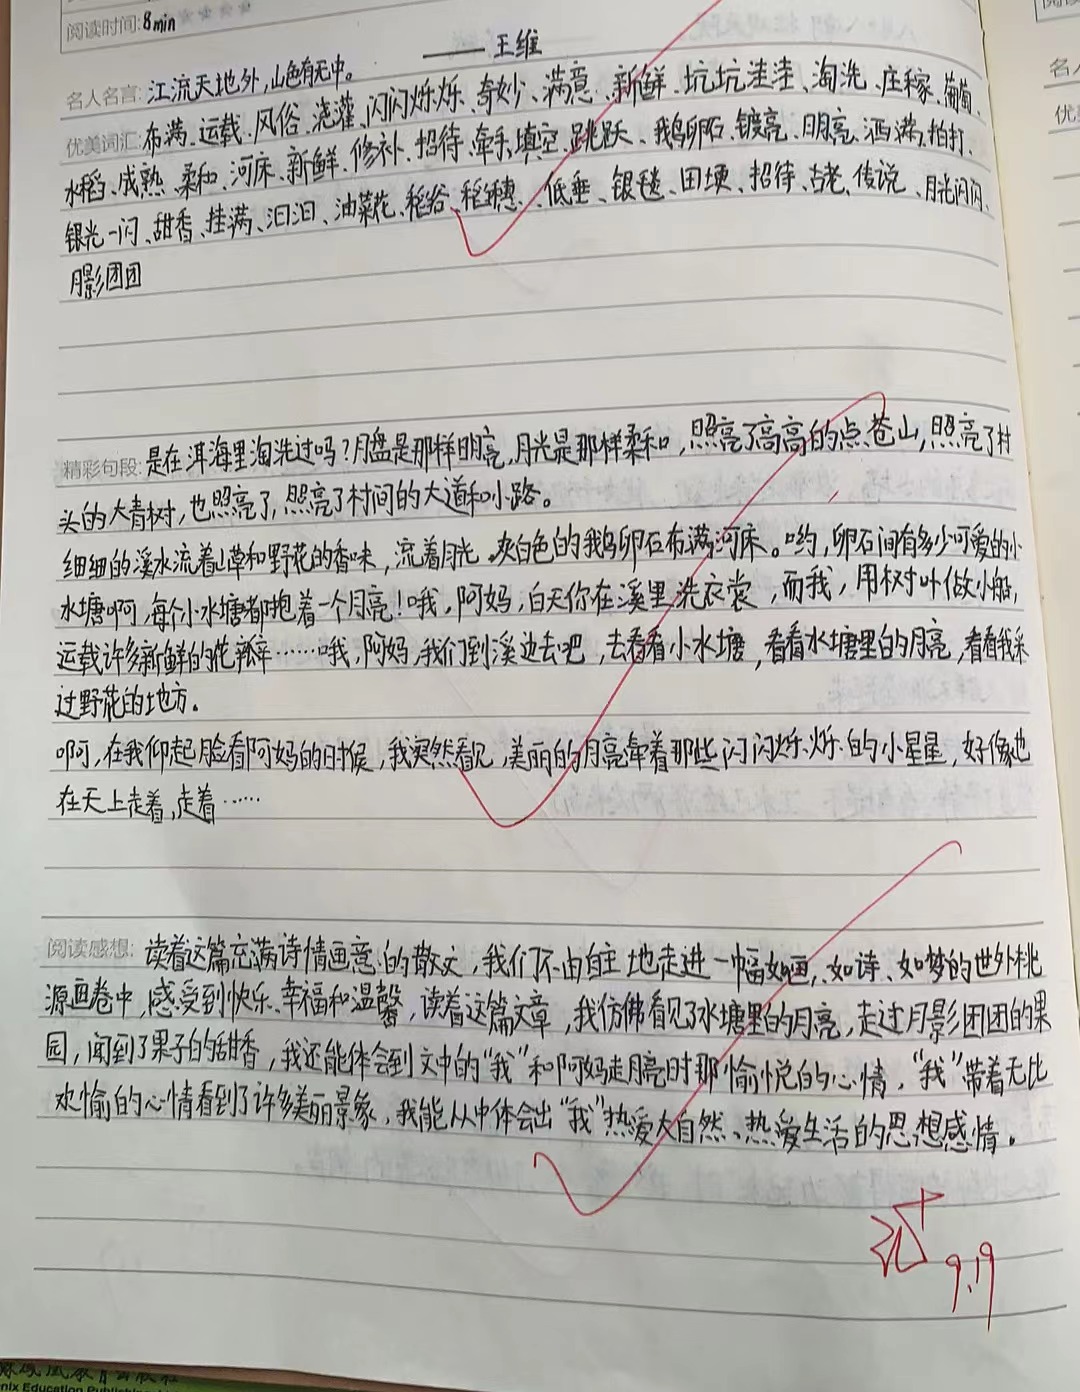 阅读时间:8min
——王维
名人名言:江流天地外,山色有无中。
优美词汇:布满、运载、风俗、浇灌、闪闪烁烁、奇妙、满意、新鲜、坑坑洼洼、淘洗、庄稼、葡萄、
水稻、成熟、柔和、河床、新鲜、修补、招待、牵手、填空、跳跃、鹅卵石、镀亮、明亮、洒满、拍打、
银光一闪、甜香、挂满、汩汩、油菜花、稻谷、稻穗、低垂、银毯、田埂、招待、古老、传说、月光闪闪、
月影团团
精彩句段:是在洱海里淘洗过吗?月盘是那样明亮,月光是那样柔和,照亮了高高的点苍山,照亮了村
头的大青树,也照亮了,照亮了村间的大道和小路。
细细的溪水流着山草和野花的香味,流着月光。灰白色的鹅卵石布满河床。哟,卵石间有多少可爱的小
水塘啊,每个小水塘都抱着一个月亮!哦,阿妈,白天你在溪里洗衣裳,而我,用树叶做小船,
运载许多新鲜的花瓣……哦,阿妈,我们到溪边去吧,去看看小水塘,看看水塘里的月亮,看看我采
过野花的地方。
啊,在我仰起脸看阿妈的时候,我突然看见,美丽的月亮牵着那些闪闪烁烁的小星星,好像也
在天上走着,走着……
阅读感想:读着这篇充满诗情画意的散文,我们不由自主地走进一幅如画、如诗、如梦的世外桃
源画卷中,感受到快乐、幸福和温馨,读着这篇文章,我仿佛看见了水塘里的月亮,走过月影团团的果
园,闻到了果子的甜香,我还能体会到文中的“我”和阿妈走月亮时那愉悦的心情,“我”带着无比
欢愉的心情看到了许多美丽景象,我能从中体会出“我”热爱大自然、热爱生活的思想感情。
9.19